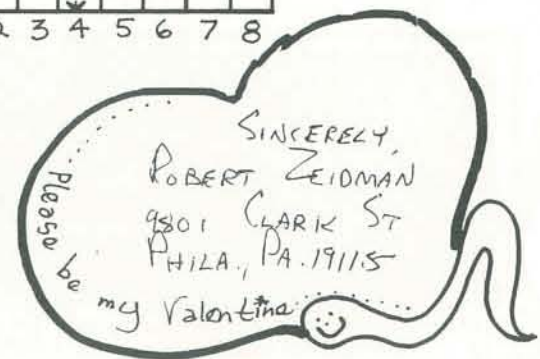 2 3 4 5 6 7 8
SINCERELY,
ROBERT ZEIDMAN
9801 CLARK ST
PHILA., PA. 19115
Please be my Valentine